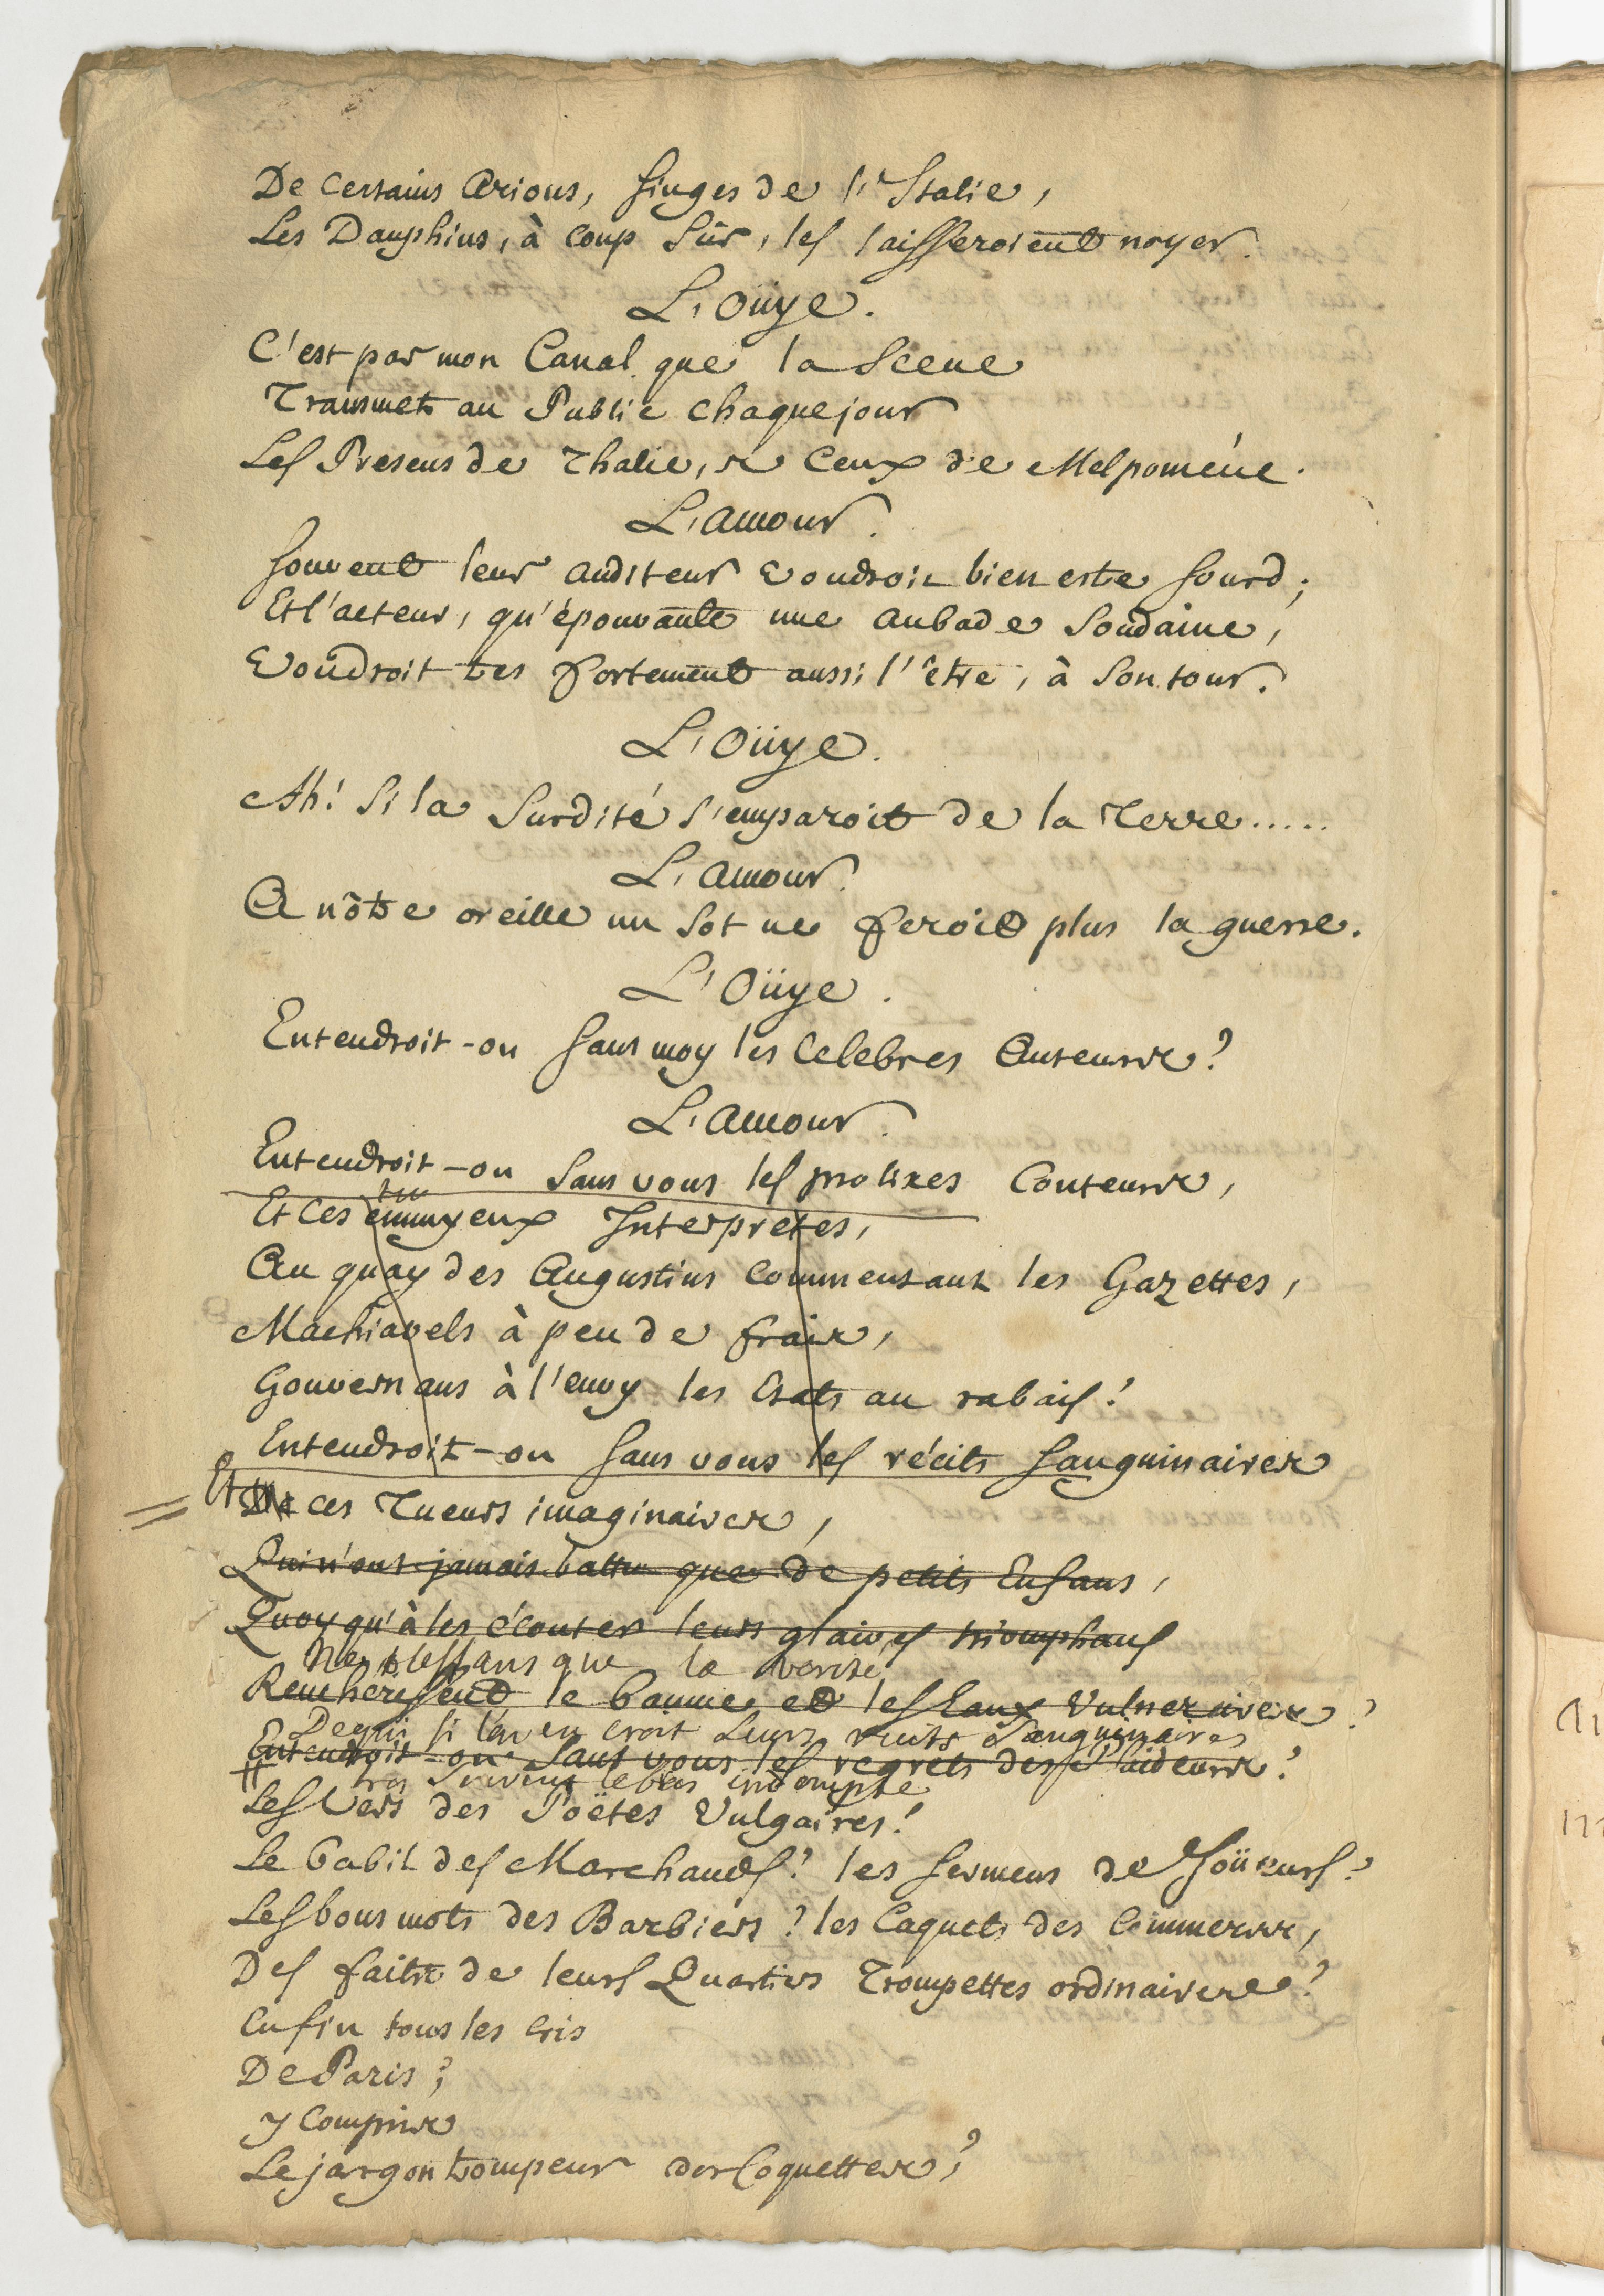 De Certains Arions, Singes de l'Italie,
Les Dauphins, à coup Sûr, les laisseroient noyer.
L'Oüye.
C'est par mon Canal que la Scene
Transmet au Public chaque jour
Les Presens de Thalie, & Ceux de Melpoméne.
L'amour.
Souvent leur auditeur voudroit bien estre Sourd;
Et l'acteur, qu'épouvante une aubade Soudaine,
Voudroit tres fortement aussi l'être, à Son tour.
L'Oüye.
Ah! Si la Surdité s'emparoit de la Terre.....
L'amour.
A nôtre oreille un Sot ne feroit plus la guerre.
L'Oüye.
Entendroit-on Sans moy les Celebres Auteurs?
L'amour.
Entendroit-on Sans vous les prolixes Conteurs,
Et Ces ennuyeux Interpretes,
Au quay des Augustins Commentant les Gazettes,
Machiavels à peu de frais,
Gouvernans à l'envy les Etats au rabais?
Entendroit-on Sans vous les récits Sanguinaires
Et De ces Tueurs imaginaires,
Qui n'ont jamais battu que de petits Enfans,
Quoy qu'à les écouter leurs glaives triomphans
Ne blessans que la verité
Rencherissent le baume et les Eaux Vulneraires?
De qui si l'on en croit Leurs recits Sanguinaires
Entendroit-on Sans vous les regrets des Plaideurs?
le bras indompté
Les Vers des Poëtes Vulgaires!
Le babil des Marchands? les Sermens de Joüeurs?
Les bons mots des Barbiers? les Caquets des Commeres,
Des faits de leurs Quartiers Trompettes ordinaires?
Enfin tous les Cris
De Paris;
Y Compris
Le jargon trompeur des Coquettes?